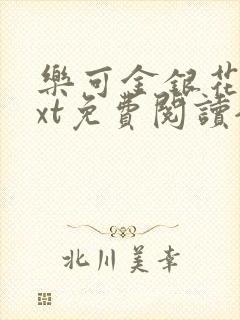 樂可金銀花
xt免費閱讀
北川美幸